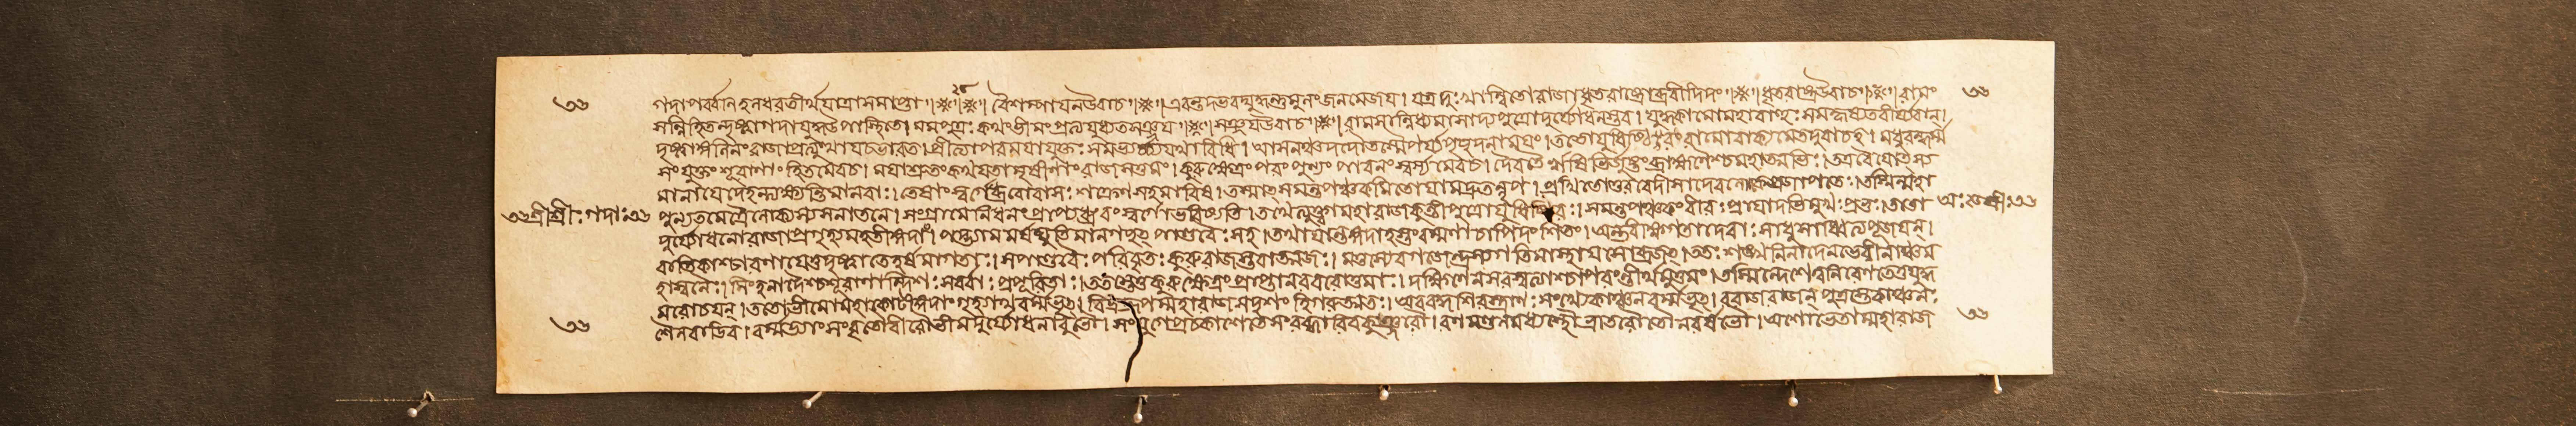 গদাপর্ব্বনি হলধরতীর্থযাত্রাসমাপ্তা ॥❈॥ ২৫ ॥❈॥ বৈশম্পায়নউবাচ ॥❈॥ এবন্তদভবদ্যুদ্ধন্তুমুলংজনমেজয় । যত্রদুঃখান্বিতোরাজাধৃতরাষ্ট্রোব্রবীদিদং ॥❈॥ ধৃতরাষ্ট্রউবাচ ॥❈॥ রামং
সন্নিহিতন্দৃষ্ট্বাগদাযুদ্ধউপস্থিতে । মমপুত্রঃকথংভীমংপ্রত্যযুধ্যতসঞ্জয় ॥❈॥ সঞ্জয়উবাচ ॥❈॥ রামসান্নিধ্যমাসাদ্যপুত্রোদুর্য্যোধনস্তব । যুদ্ধকামোমহাবাহুঃসমহৃষ্যতবীর্য্যবান্ ।
দৃষ্ট্বালাঙ্গলিনংরাজাপ্রত্যুত্থায়চভারত । প্রীত্যাপরময়াযুক্তঃসমভ্যর্চ্চ্যযথাবিধি । আসনঞ্চদদৌতস্মৈপর্য্যপৃচ্ছদনাময়ং । ততোযুধিষ্ঠিরংরামোবাক্যমেতদুবাচহ । মধুরন্ধর্ম্ম
সংযুক্তংশূরাণাংহিতমেবচ । ময়াশ্রুতংকথয়তামৃষীণাংরাজসত্তমং । কুরুক্ষেত্রংপরংপুণ্যংপাবনংস্বর্গ্যমেবচ । দেবতৈর্ঋষিভির্জুষ্টংব্রাহ্মণৈশ্চমহাত্মভিঃ । তত্রবৈযোৎস্য
মানাযেদেহন্ত্যক্ষ্যন্তিমানবাঃ । তেষাংস্বর্গেধ্রুবোবাসঃশক্রেণসহমারিষ । তস্মাৎসমন্তপঞ্চকমিতোযামদ্রুতন্নৃপ । প্রথিতোত্তরবেদীসাদেবলোকেপ্রজাপতেঃ । তস্মিন্মহা
৩৬ শ্রীশ্রীঃগদাঃ৩৬ পুণ্যতমেত্রৈলোক্যস্যসনাতনে । সংগ্রামেনিধনংপ্রাপ্যধ্রুবংস্বর্গোভবিষ্যতি । তথেত্যুক্ত্বামহারাজকুন্তীপুত্রোযুধিষ্ঠিরঃ । সমন্তপঞ্চকংবীরঃপ্রায়াদভিমুখঃপ্রভুঃ । ততো
দুর্য্যোধনোরাজাপ্রগৃহ্যমহতীঙ্গদাং । পদ্ভ্যামমর্ষদ্যুতিমানগচ্ছৎপাণ্ডবৈঃসহ । তথাযান্তঙ্গদাহস্তংবর্ম্মণাচাপিদংশিতং । অন্তরীক্ষগতাদেবাঃসাধুসাধ্বিত্যপূজয়ন্ ।
বাতিকাশ্চারণাযেত্রদৃষ্ট্বাতেহর্ষমাগতাঃ । সপাণ্ডবৈঃপরিবৃতঃকুরুরাজস্তবাত্মজঃ । মত্তস্যেবগজেন্দ্রস্যগতিমাস্থায়সোব্রজৎ । ততঃশঙ্খনিনাদেনভেরীণাঞ্চম
হাস্বনৈঃ । সিংহনাদৈশ্চশূরাণান্দিশঃসর্ব্বাঃপ্রপূরিতাঃ । ততস্তেতুকুরুক্ষেত্রংপ্রাপ্তানরবরোত্তমাঃ । দক্ষিণেনসরস্বত্যাশ্চাপরংতীর্থমুত্তমং । তস্মিন্দেশেত্বনিরিণেতেত্রযুদ্ধ
মরোচয়ন্ । ততোভীমোমহাকোটীঙ্গদাংগৃহ্যাথবর্ম্মভৃৎ । বিভ্রদ্রূপম্মহারাজসদৃশংহিগরুত্মতঃ । অববদ্ধশিরস্ত্রাণঃসংখ্যেকাঞ্চনবর্ম্মভৃৎ । ররাজরাজন্পুত্রস্তেকাঞ্চনঃ
শৈলরাডিব । বর্ম্মভ্যাংসংবৃতৌবীরৌভীমদুর্য্যোধনাবুভৌ । সংযুগেপ্রচকাশেতেসংরব্ধাবিবকুঞ্জরৌ । রণমণ্ডলমধ্যস্থৌভ্রাতরৌতৌনরর্ষভৌ । অশোভেতাম্মহারাজ